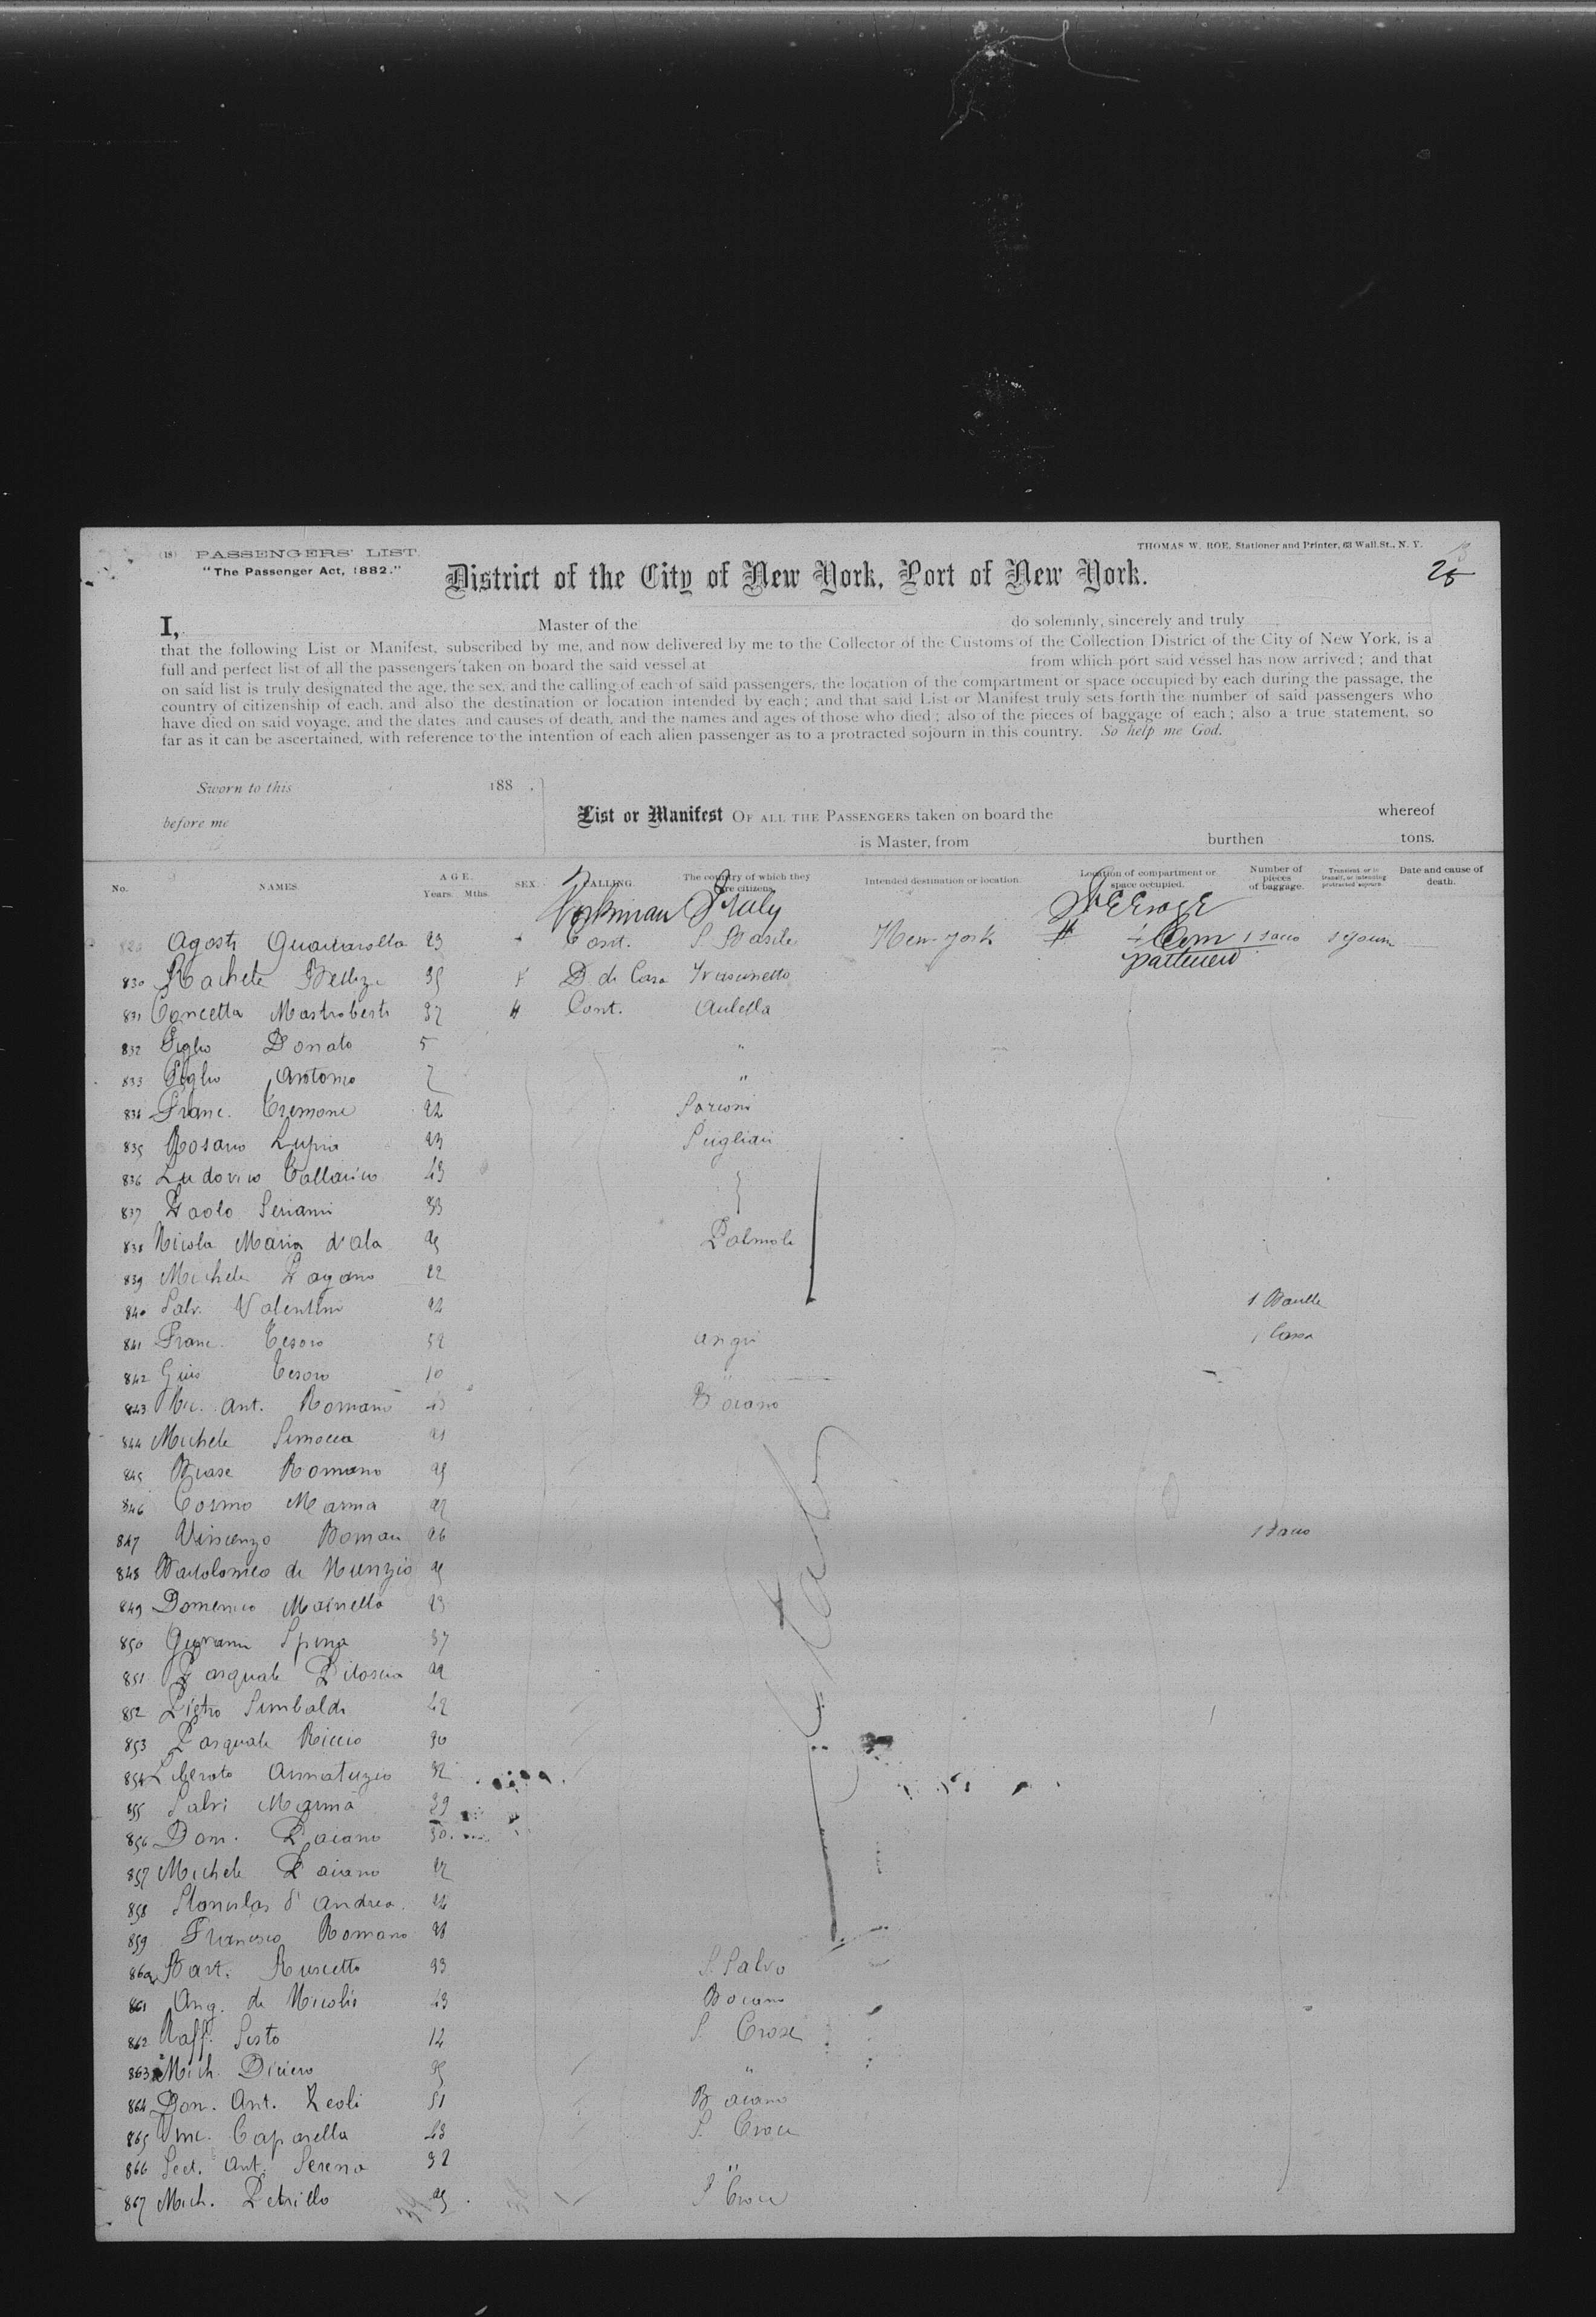 (18) PASSENGERS' LIST.
THOMAS W. ROE, Stationer and Printer, 63 Wall St., N. Y.
"The Passenger Act, 1882."
District of the City of New York, Port of New York.
I, Master of the do solemnly, sincerely and truly
that the following List or Manifest, subscribed by me, and now delivered by me to the Collector of the Customs of the Collection District of the City of New York, is a
full and perfect list of all the passengers taken on board the said vessel at from which port said vessel has now arrived; and that
on said list is truly designated the age, the sex, and the calling of each of said passengers, the location of the compartment or space occupied by each during the passage, the
country of citizenship of each, and also the destination or location intended by each; and that said List or Manifest truly sets forth the number of said passengers who
have died on said voyage, and the dates and causes of death, and the names and ages of those who died; also of the pieces of baggage of each; also a true statement, so
far as it can be ascertained, with reference to the intention of each alien passenger as to a protracted sojourn in this country. So help me God.
Sworn to this 188 .
before me
List or Manifest OF ALL THE PASSENGERS taken on board the whereof
is Master, from burthen tons.
No. NAMES. AGE. Years. Mths. SEX. CALLING. The country of which they are citizens. Intended destination or location. Location of compartment or space occupied. Number of pieces of baggage. Transient, or in transit, or intending protracted sojourn. Date and cause of death.
Workman Italy
Agosti 23 Cont. S Basile New-York 1 sacco
830 Rachele 35 D. di Casa
831 Concetta Mastroberti 37 Cont. Auletta
832 Figlio Donato 5 "
833 Figlio Antonio 7 "
834 Franc. Cremone 22
835 Rosario Lupia 23
836 Ludovico Tallarico 43
837 Paolo Serianni 33
838 Nicola Maria d'Ala 25 Palmoli
839 Michele Pagano 22
840 Salv. Valentini 22 1 Baulle
841 Franc. Tesoro 52 Angri 1 Cassa
842 Gius Tesoro 10 "
843 Nic. Ant. Romano Boiano
844 Michele 21
845 Biase Romano 25
846 Cosmo Marma 22
847 Vincenzo Roman 26 1 Sacco
848 Bartolomeo di Nunzio 25
849 Domenico Mainella 23
850 Giovanni Spina 37
851 Pasquale 22
852 Pietro Simbaldi 42
853 Pasquale Riccio 30
854 Liberato Armatuzio 32
855 Salvi Marma 39
856 Dom. Paiano 30
857 Michele Paiano
858 Stanislas d'Andrea 24
859 Francesco Romano 28
860 Bart. Ruscetta 23 S. Salvo
861 Ang. de Nicolis 43 Boiano
862 Raff. Sisto 12 S. Croce
863 Mich. 35 "
864 Dom. Ant. Reoli 51 Boiano
865 Vinc. Caparella 43 S. Croce
866 Ant. Serena 32 "
867 Mich. Petrillo 25 S Croce